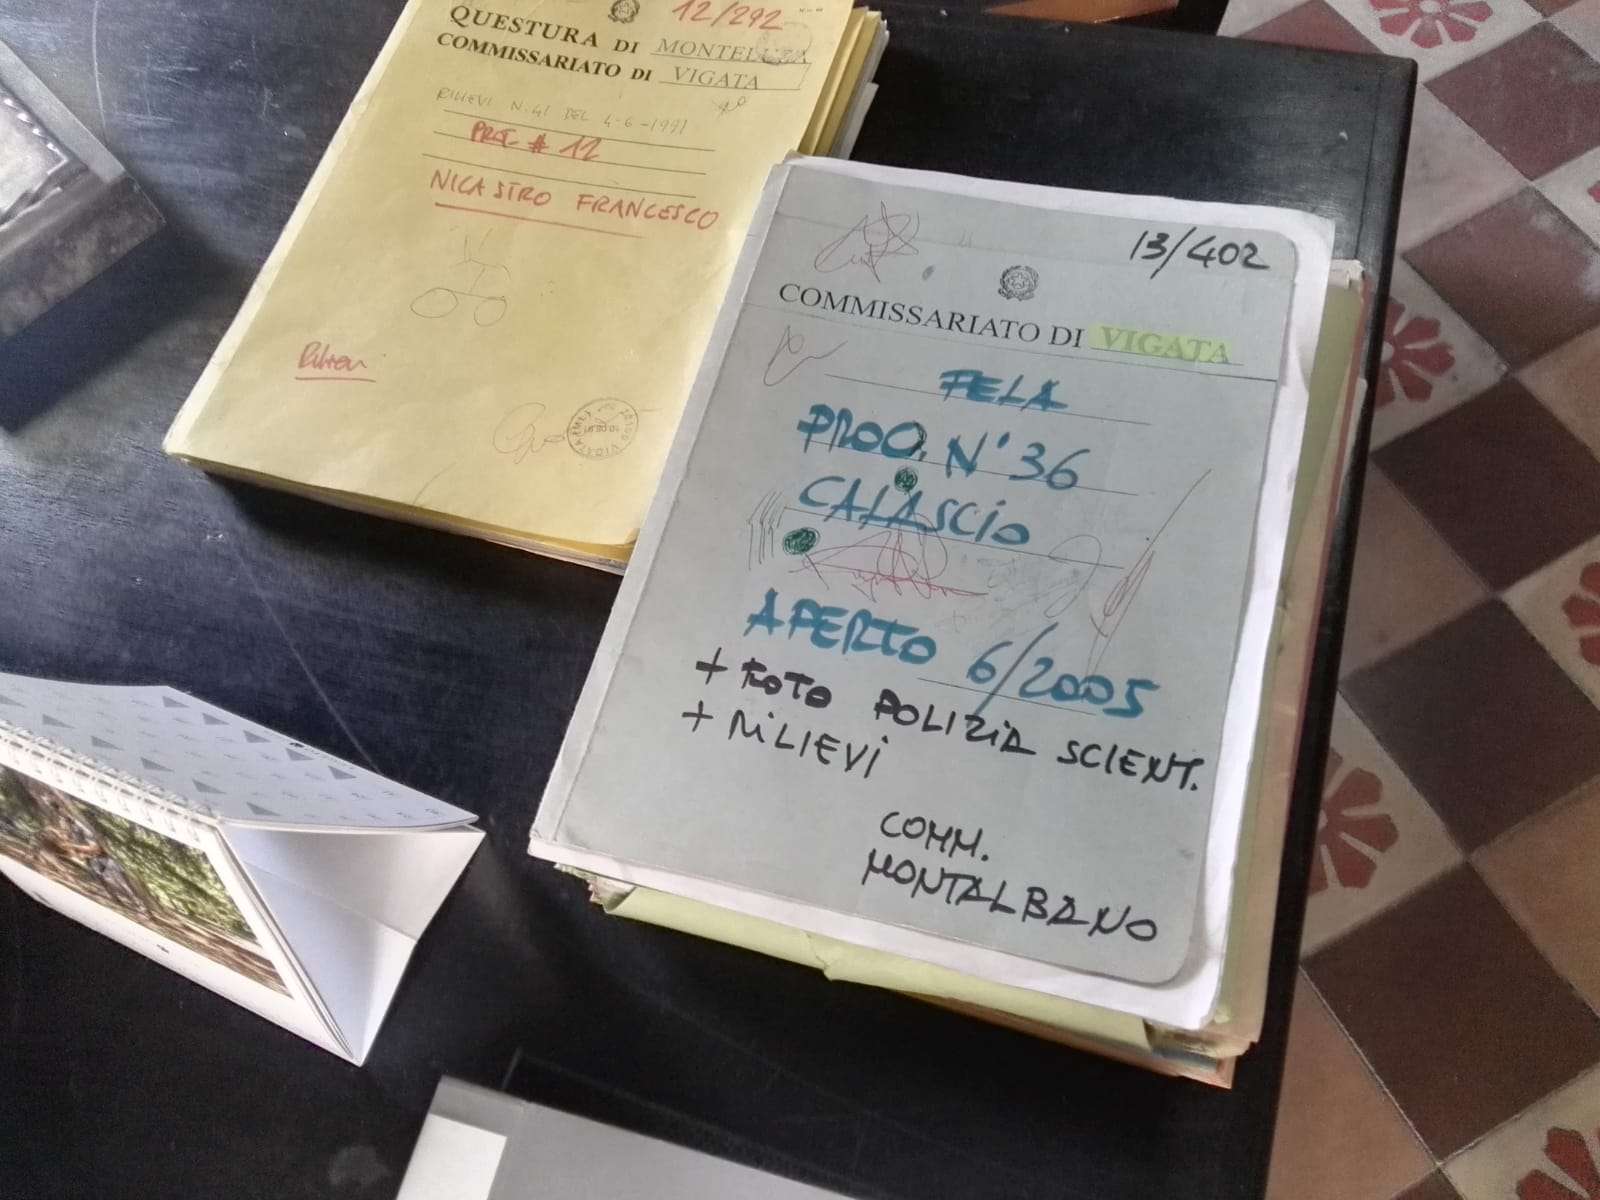 12/292
QUESTURA DI MONTELUSA
COMMISSARIATO DI VIGATA
RILIEVI N.41 DEL 4-6-1991
PROT # 12
NICASTRO FRANCESCO
13/402
COMMISSARIATO DI VIGATA
FELA
PROC. N° 36
CALASCIO
APERTO 6/2005
+ FOTO POLIZIA SCIENT.
+ RILIEVI
COMM.
MONTALBANO